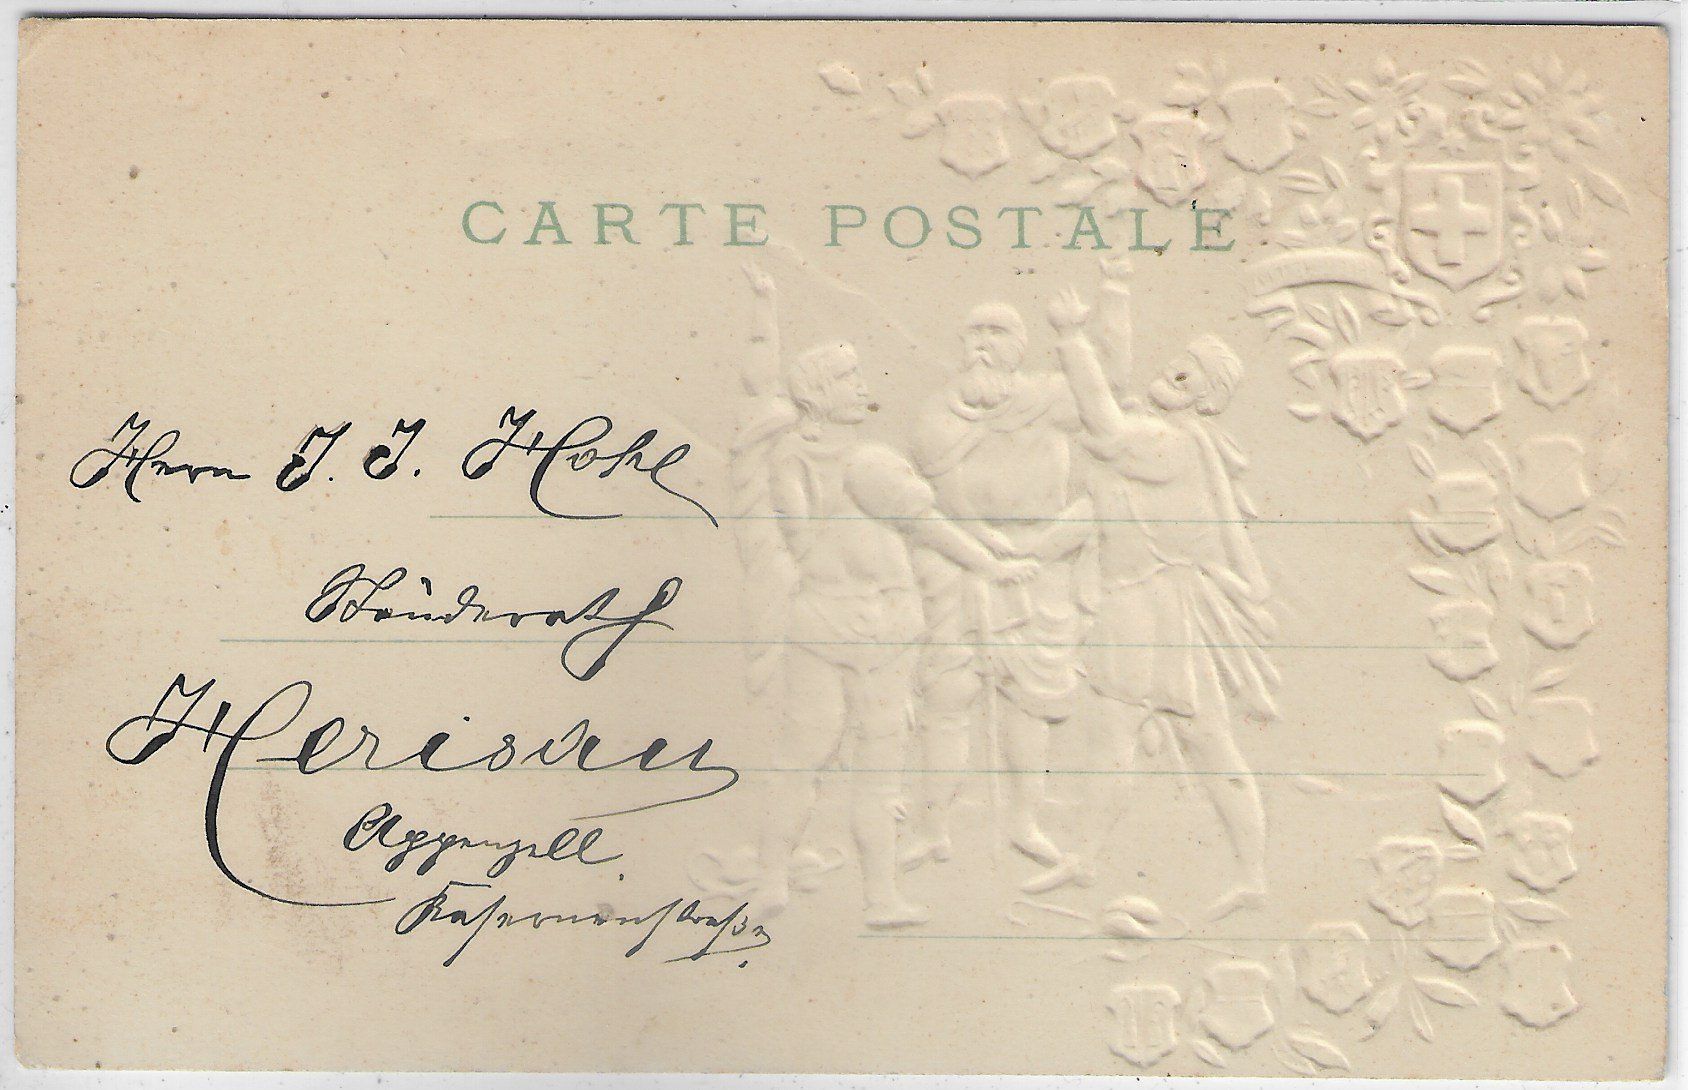 CARTE POSTALE
Herrn J. J. Hohl
Ständerath
Herisau
Appenzell
Kasernenstraße.